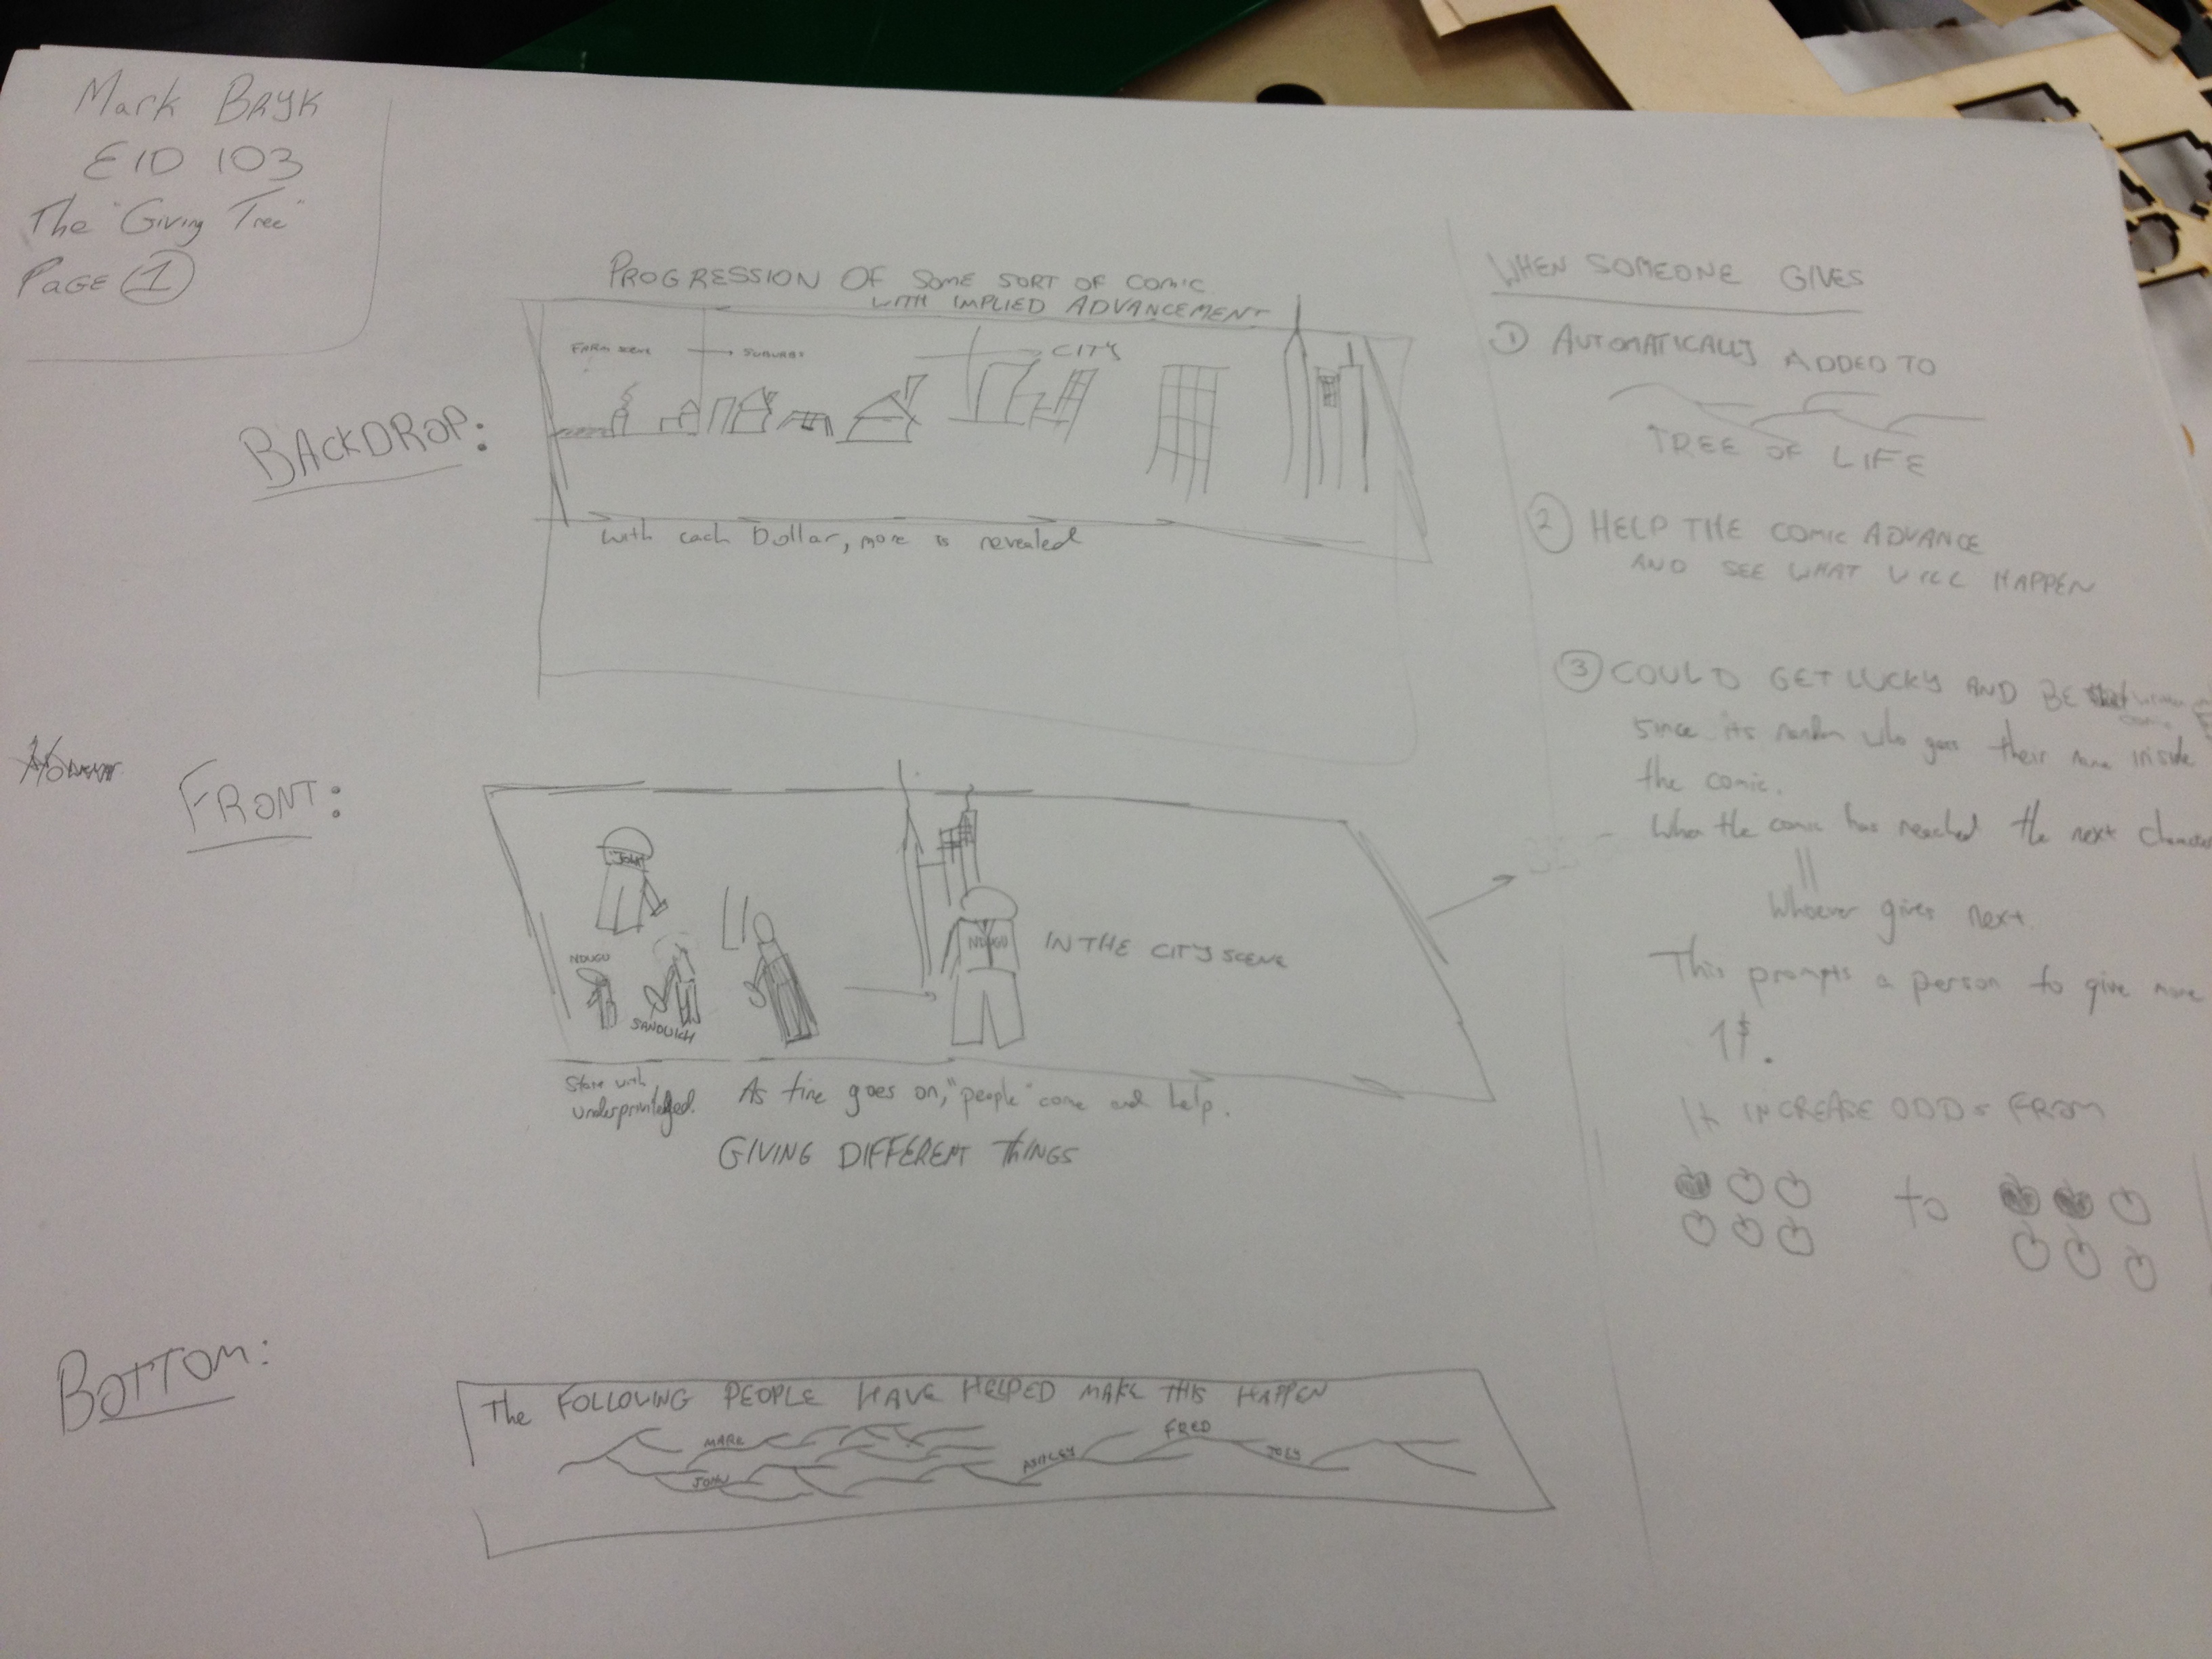 Mark BRYK
EID 103
The "Giving Tree"
PAGE 1
BACKDROP:
PROGRESSION OF SOME SORT OF COMIC
WITH IMPLIED ADVANCEMENT
FARM SCENE
SUBURBS
CITY
with each Dollar, more is revealed
FRONT:
JOHN
NDUGU
SANDWICH
NDUGU
IN THE CITY SCENE
with
underprivileged.
As time goes on, "people" come and help.
GIVING DIFFERENT THINGS
BOTTOM:
The FOLLOWING PEOPLE HAVE HELPED MAKE THIS HAPPEN
MARK
JOHN
ASHLEY
FRED
JOEY
WHEN SOMEONE GIVES
1 AUTOMATICALLY ADDED TO
TREE OF LIFE
2 HELP THE COMIC ADVANCE
AND SEE WHAT WILL HAPPEN
3 COULD GET LUCKY AND BE
since its random who goes their name inside
the comic.
When the comic has reached the next character
Whoever gives next
This prompts a person to give more
1$.
It INCREASE ODDS FROM
to